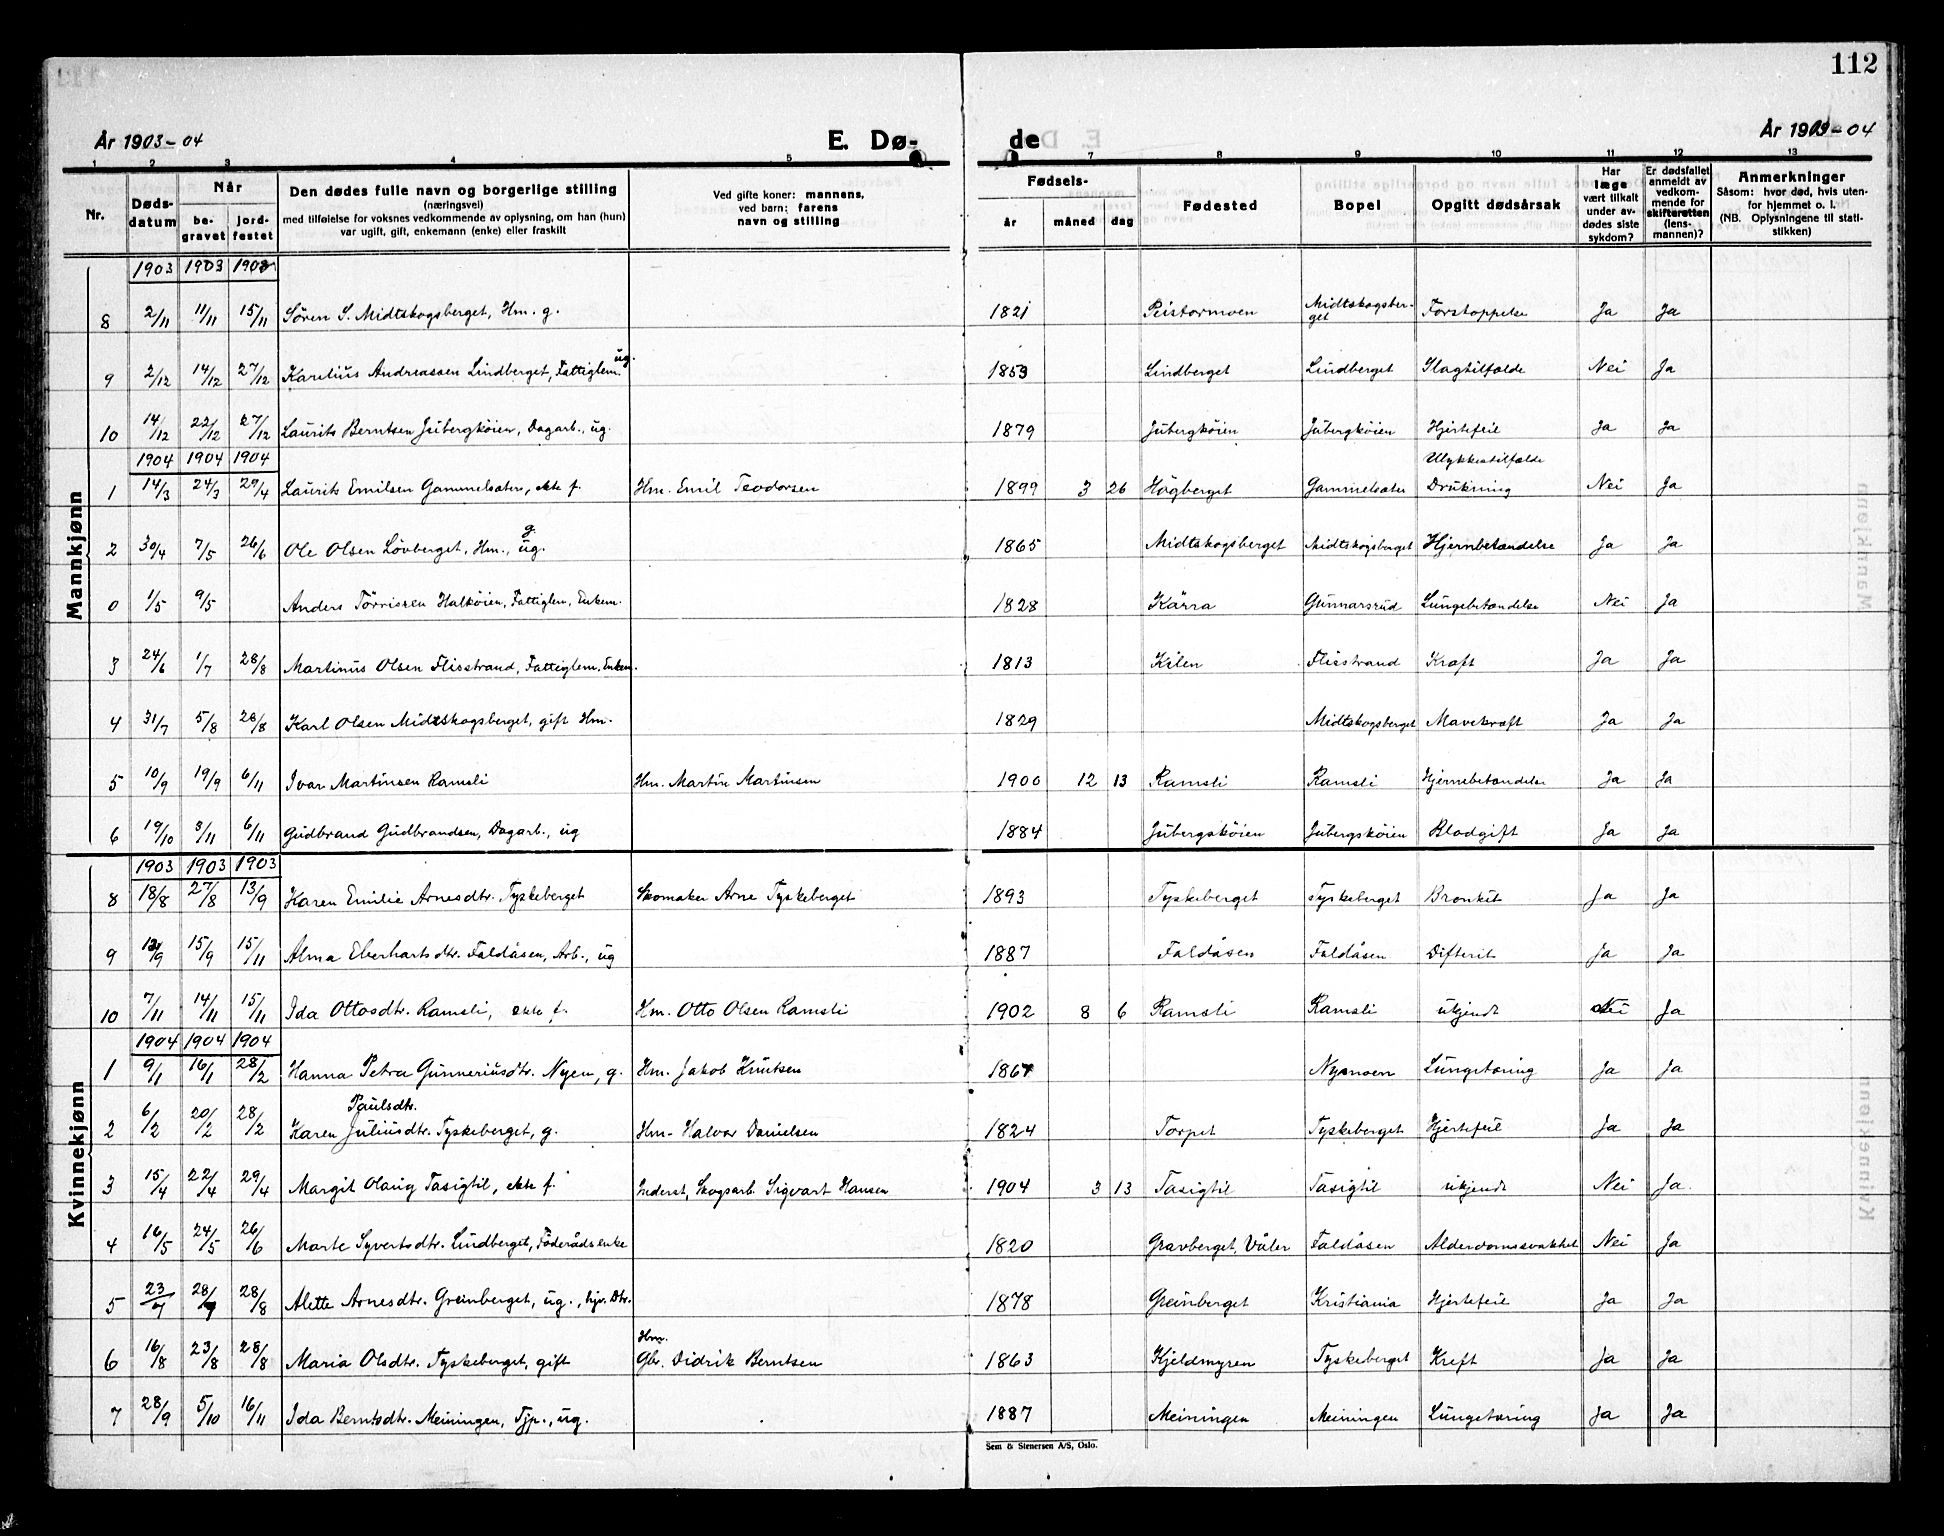 112
År 1903-04 E. Dø- de År 1903-04
1 2 3 4 5 7 8 9 10 11 12 13
Nr. Døds-datum Når be-gravet jord-festet Den dødes fulle navn og borgerlige stilling (næringsvei) med tilføielse for voksnes vedkommende av oplysning, om han (hun) var ugift, gift, enkemann (enke) eller fraskilt Ved gifte koner: mannens, ved barn: farens navn og stilling Fødsels- år måned dag Fødested Bopel Opgitt dødsårsak Har læge vært tilkalt under av-dødes siste sykdom? Er dødsfallet anmeldt av vedkom-mende for skifteretten (lens-mannen)? Anmerkninger Såsom: hvor død, hvis uten-for hjemmet o. l. (NB. Oplysningene til stati-stikken)
Mannkjønn
1903 1903 1903
8 2/11 11/11 15/11 Søren S. Midtskogsberget, Hm. g. 1821 Peistormoen Midtskogsber-get Forstoppelse Ja Ja
9 2/12 14/12 27/12 Karelius Andreassen Lindberget, Fattiglem. ug. 1853 Lindberget Lindberget Slagtilfælde Nei Ja
10 14/12 22/12 27/12 Laurits Berntsen Jubergkøien, Dagarb., ug. 1879 Jubergkøien Jubergkøien Hjertefeil Ja Ja
1904 1904 1904
1 14/3 24/3 29/4 Laurits Emilsen Gammelsæter, ekte f. Hm. Emil Teodorsen 1899 3 26 Høgberget Gammelsæter Ulykkestilfælde Drukning Nei Ja
2 30/4 7/5 26/6 Ole Olsen Løvberget, Hm., ug. g. 1865 Midtskogsberget Midtskogsberget Hjernbetændelse Ja Ja
0 1/5 9/5 Anders Tørrissen Halkøien, Fattiglem, Enkem. 1828 Kärra Gunnarsrud Lungebetændelse Nei Ja
3 24/6 1/7 28/8 Martinus Olsen Flisstrand, Fattiglem, Enkem. 1813 Kilen Flisstrand Kræft Ja Ja
4 31/7 5/8 28/8 Karl Olsen Midtskogsberget, gift Hm. 1829 Midtskogsberget Mavekræft Ja Ja
5 10/9 19/9 6/11 Ivar Martinsen Ramsli Hm. Martin Martinsen 1900 12 13 Ramsli Ramsli Hjernebetændelse Ja Ja
6 19/10 3/11 6/11 Gudbrand Gudbrandsen, Dagarb., ug 1884 Jubergskøien Jubergskøien Blodgift Ja Ja
Kvinnekjønn
1903 1903 1903
8 18/8 27/8 13/9 Karen Emilie Arnesdtr. Tyskeberget Skomaker Arne Tyskeberget 1893 Tyskeberget Tyskeberget Bronkit Ja Ja
9 15/9 15/11 Alma Eberhartsdtr. Faldåsen, Arb., ug 1887 Faldåsen Faldåsen Difterit Ja Ja
10 7/11 14/11 15/11 Ida Ottosdtr. Ramsli, ekte f. Hm. Otto Olsen Ramsli 1902 8 6 Ramsli Ramsli ukjendt Nei Ja
1904 1904 1904
1 9/1 16/1 28/2 Hanna Petra Gunneriusdtr. Nyen, g. Hm. Jakob Knutsen 1867 Nysmoen Lungetæring Ja Ja
2 6/2 20/2 28/2 Karen Juliusdtr. Paulsdtr. Tyskeberget, g. Hm. Halvor Danielsen 1824 Torpet Tyskeberget Hjertefeil Ja Ja
3 15/4 22/4 29/4 Margit Olaug Tasigtil, ekte f. Inderst, Skogsarb. Sigvart Hansen 1904 3 13 Tasigtil Tasigtil ukjendt Nei Ja.
4 16/5 24/5 26/6 Marte Syvertsdtr. Lindberget, Føderådsenke 1820 Gravberget, Våler Faldåsen Alderdomssvakhet Nei Ja
5 23/7 28/7 28/8 Alette Arnesdtr. Greinberget, ug., hjv. Dtr. 1878 Greinberget Kristiania Hjertefeil Ja Ja
6 16/8 23/8 28/8 Maria Olsdtr. Tyskeberget, gift Hm. Gbr. Didrik Berntsen 1863 Kjeldmyren Tyskeberget Kreft Ja Ja
7 28/9 5/10 16/11 Ida Berntsdtr. Meiningen, Tjp., ug. 1887 Meiningen Meiningen Lungetæring Ja Ja
Sem & Stenersen A/S, Oslo.